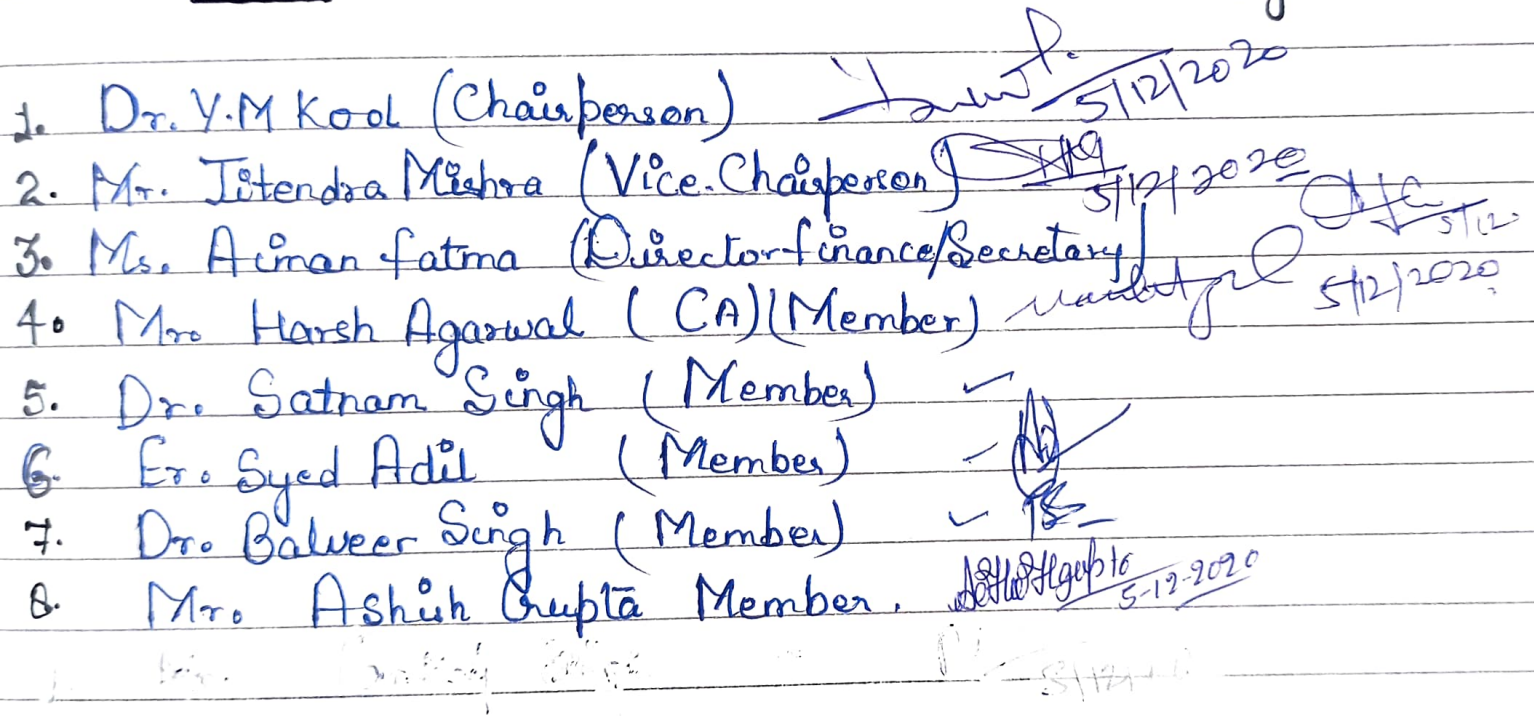 1. Dr. Y.M Kool (Chairperson) 5/12/2020
2. Mr. Jitendra Mishra (Vice-Chairperson) 5/12/2020
3. Ms. Aiman fatma (Director-finance/Secretary) 5/12
4. Mr. Harsh Agarwal (CA) (Member) 5/12/2020
5. Dr. Satnam Singh (Member)
6. Er. Syed Adil (Member)
7. Dr. Balveer Singh (Member)
8. Mr. Ashish Gupta Member. 5-12-2020